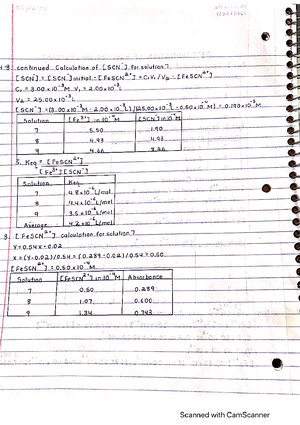 continued Calculation of [SCN⁻] for solution 7
[SCN⁻] = [SCN⁻] initial - [FeSCN²⁺] = C₁V₁ / V₂ - [FeSCN²⁺]
C₁ = 3.00 x 10⁻³ M V₁ = 2.00 x 10⁻³ L
V₂ = 25.00 x 10⁻³ L
Solution [Fe³⁺] in 10⁻⁴ M [SCN⁻] in 10⁻⁴ M
7 5.50 1.90
8 4.93 4.93
9 4.66
5. Keq = [FeSCN²⁺]
[Fe³⁺][SCN⁻]
Solution Keq
7 4.8 x 10⁻² L/mol
8 4.4 x 10⁻² L/mol
9 3.5 x 10⁻² L/mol
Average 4.2 x 10⁻² L/mol
3. [FeSCN²⁺] calculation for solution 7
Y = 0.54x + 0.02
X = (Y-0.02)/0.54 = (0.289-0.02)/0.54 = 0.50
[FeSCN²⁺] = 0.50 x 10⁻⁴ M
Solution [FeSCN²⁺] in 10⁻⁴ M Absorbance
7 0.50 0.289
8 1.07 0.600
9 1.34 0.743
Scanned with CamScanner